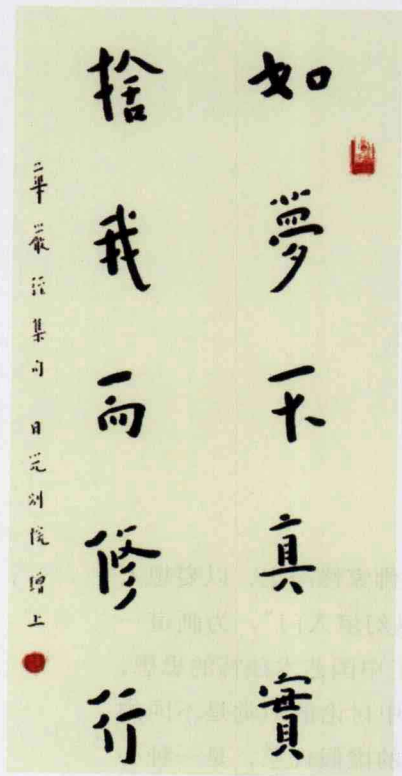 如夢不真實
捨我而修行
華嚴經集句 日光別院 增上